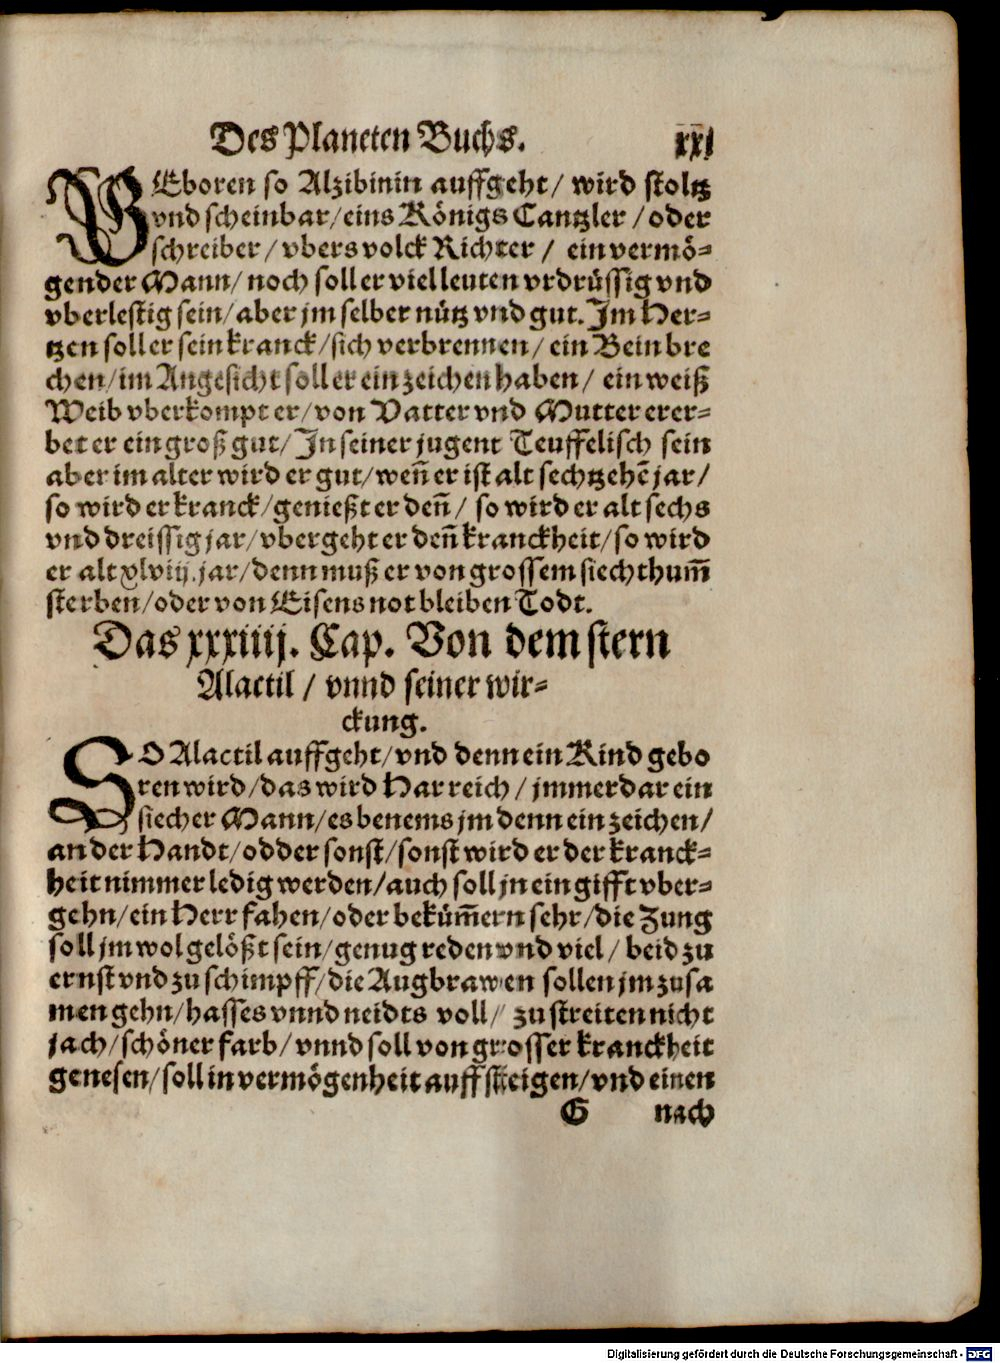 Des Planeten Buchs. xxj
GEboren so Alzibinin auffgeht/ wird stoltz
vnd scheinbar/eins Königs Cantzler / oder
schreiber/ vbers volck Richter / ein vermö-
gender Mann/ noch soll er viel leuten vrdrüssig vnd
vberlestig sein/ aber jm selber nütz vnd gut. Im Her-
tzen soll er sein kranck/sich verbrennen/ ein Bein bre
chen/im Angesicht soll er ein zeichen haben/ ein weiß
Weib vberkompt er/von Vatter vnd Mutter erer-
bet er ein groß gut/ In seiner jugent Teuffelisch sein
aber im alter wird er gut/wen̄ er ist alt sechtzehē jar/
so wird er kranck/genießt er den̄/ so wird er alt sechs
vnd dreissig jar/vbergeht er den̄ kranckheit/so wird
er alt xlviij. jar/denn muß er von grossem siechthum̄
sterben/oder von Eisens not bleiben Todt.
Das xxxiiij. Cap. Von dem stern
Alactil / vnnd seiner wir-
ckung.
SO Alactil auffgeht/vnd denn ein Kind gebo
ren wird/das wird Har reich / jmmerdar ein
siecher Mann/es benems jm denn ein zeichen/
an der Handt/odder sonst/sonst wird er der kranck-
heit nimmer ledig werden/auch soll jn ein gifft vber-
gehn/ein Herr fahen/oder beküm̄ern sehr/die Zung
soll jm wol gelößt sein/genug reden vnd viel/ beid zu
ernst vnd zu schimpff/die Augbrawen sollen jm zusa
men gehn/hasses vnnd neidts voll/ zu streiten nicht
jach/schöner farb/vnnd soll von grosser kranckheit
genesen/soll in vermögenheit auff steigen/vnd einen
G nach
Digitalisierung gefördert durch die Deutsche Forschungsgemeinschaft - DFG